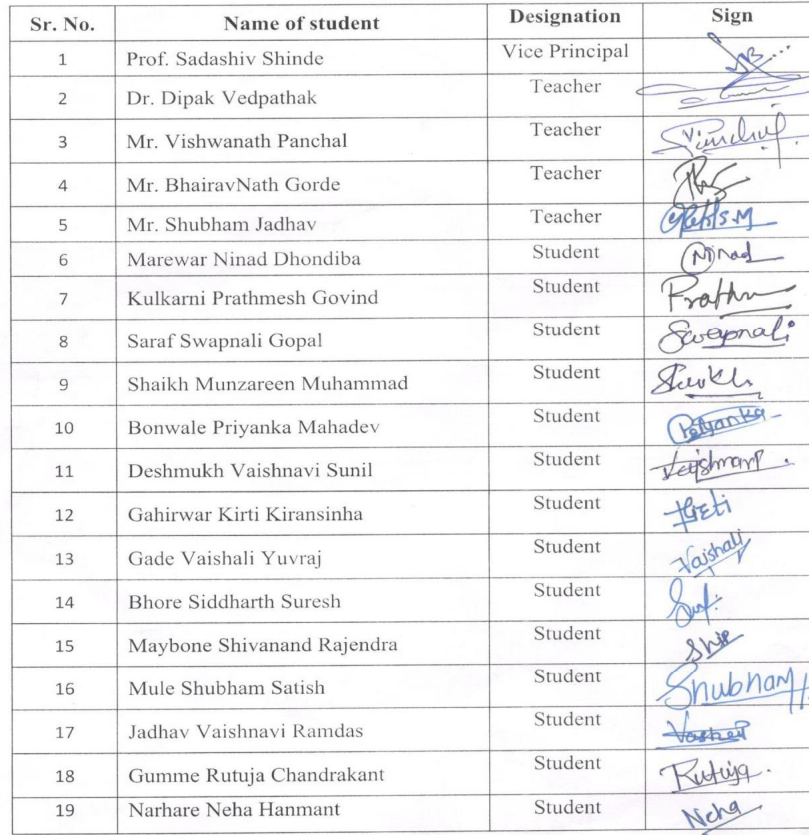 Sr. No. Name of student Designation Sign
1 Prof. Sadashiv Shinde Vice Principal
2 Dr. Dipak Vedpathak Teacher
3 Mr. Vishwanath Panchal Teacher Panchal
4 Mr. BhairavNath Gorde Teacher
5 Mr. Shubham Jadhav Teacher
6 Marewar Ninad Dhondiba Student Ninad
7 Kulkarni Prathmesh Govind Student
8 Saraf Swapnali Gopal Student Swapnali
9 Shaikh Munzareen Muhammad Student
10 Bonwale Priyanka Mahadev Student Priyanka
11 Deshmukh Vaishnavi Sunil Student
12 Gahirwar Kirti Kiransinha Student
13 Gade Vaishali Yuvraj Student Vaishali
14 Bhore Siddharth Suresh Student
15 Maybone Shivanand Rajendra Student
16 Mule Shubham Satish Student Shubham
17 Jadhav Vaishnavi Ramdas Student
18 Gumme Rutuja Chandrakant Student Rutuja.
19 Narhare Neha Hanmant Student Neha